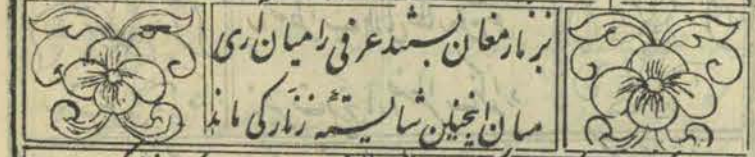 بزنار مغان بستند عرفی را میان آری
میان اینچنین شایستهٔ زنار کی ماند